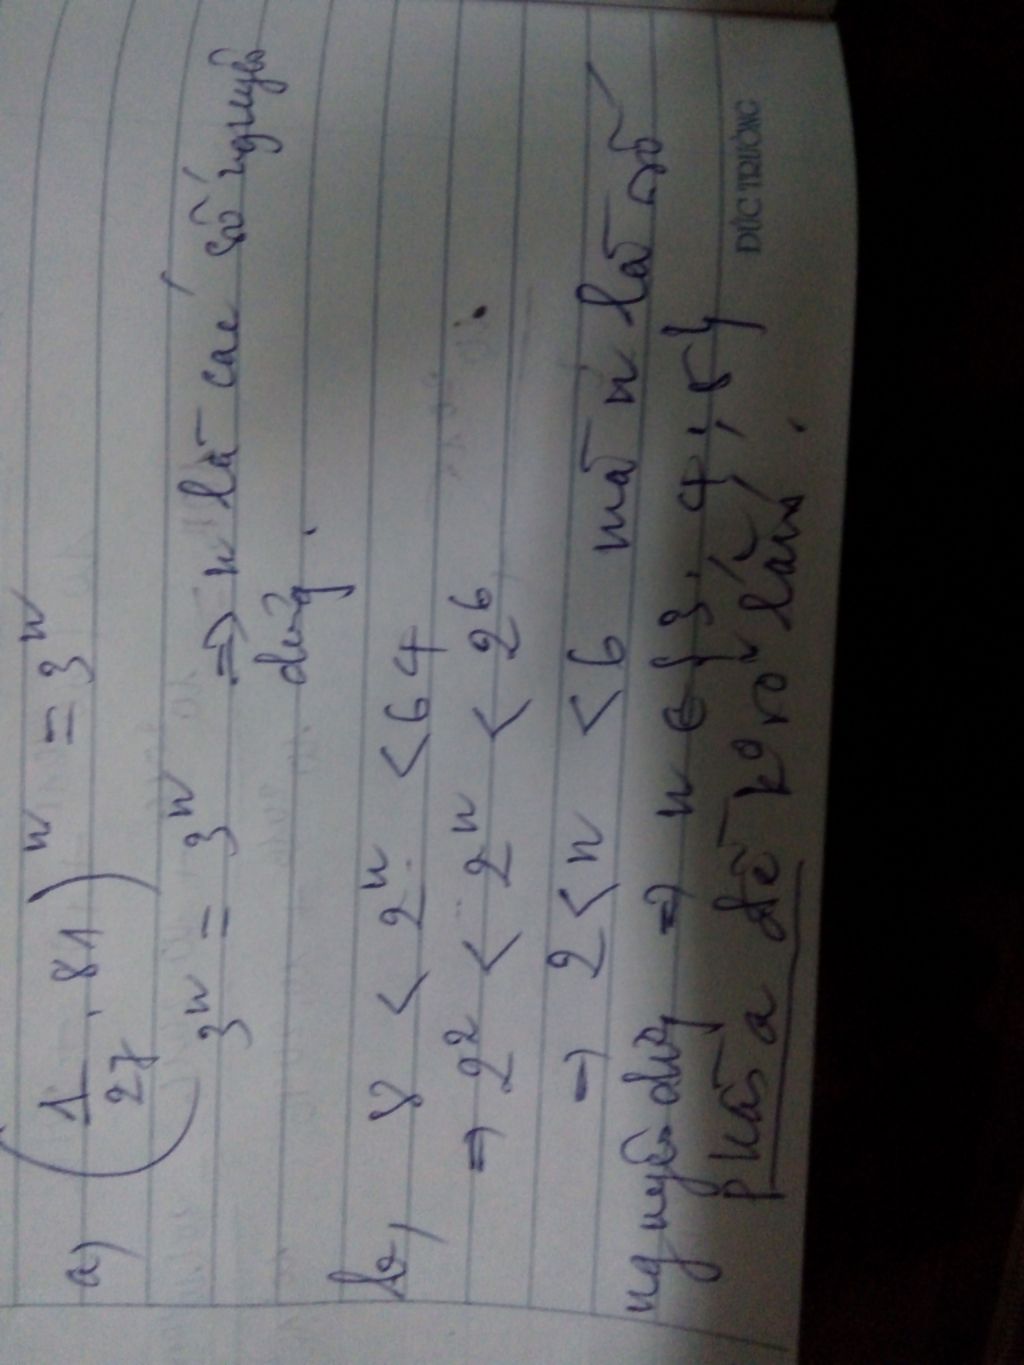 a) (1/27 . 81)ⁿ = 3ⁿ
3ⁿ = 3ⁿ ⇒ n là các số nguyên
dương.
b, 8 < 2ⁿ < 64
⇒ 2² < 2ⁿ < 2⁶
⇒ 2 < n < 6 mà n là số
nguyên dương ⇒ n ∈ { 3; 4; 5 }
phần a đề ko rõ lắm.
ĐỨC TRƯỜNG